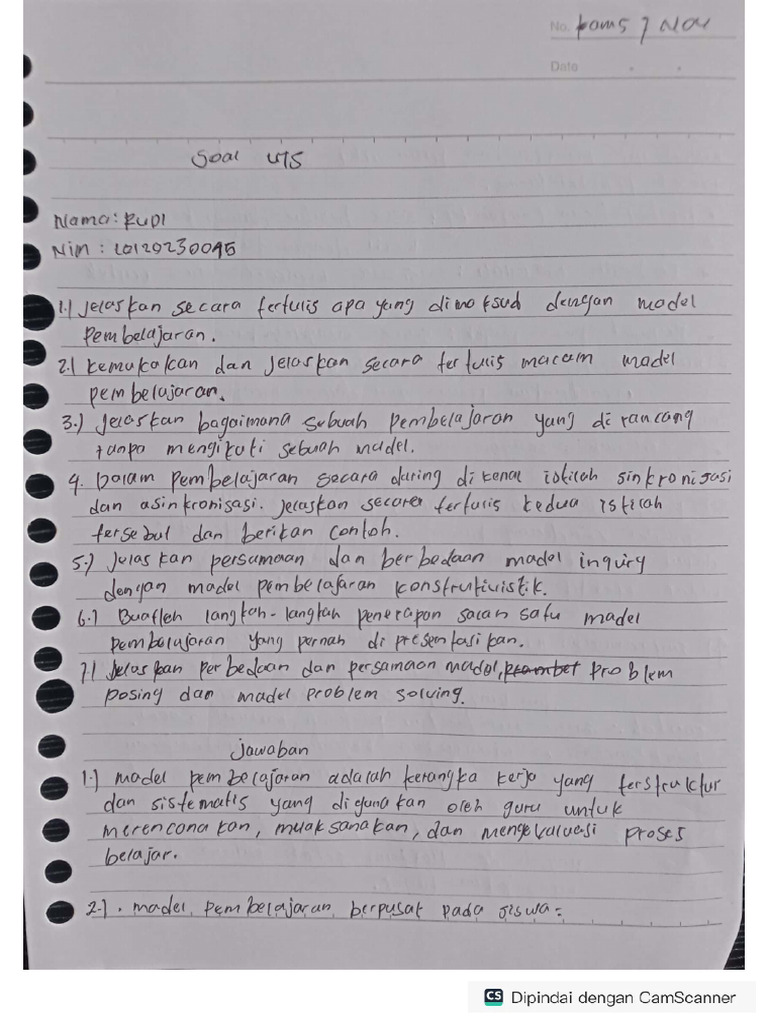 No. kamis 7 Nov
Date
Soal UTS
Nama: RUDI
Nim : 20120230095
1.) Jelaskan secara tertulis apa yang dimaksud dengan model
Pembelajaran.
2.) kemukakan dan jelaskan secara tertulis macam model
pembelajaran.
3.) Jelaskan bagaimana sebuah pembelajaran yang di rancang
tanpa mengikuti sebuah model.
4. Dalam pembelajaran secara daring di kenal istilah sinkronisasi
dan asinkronisasi. jelaskan secara tertulis kedua istilah
tersebut dan berikan contoh.
5.) Jelaskan persamaan dan berbedaan model inquiry
dengan model pembelajaran konstruktivistik.
6.) Buatleh langkah-langkah penerapan salah satu model
pembelajaran yang pernah di presentasikan.
7.) Jelaskan perbedaan dan persamaan model, problem
posing dan model problem solving.
Jawaban
1.) model pembelajaran adalah kerangka kerja yang terstruktur
dan sistematis yang digunakan oleh guru untuk
merencanakan, melaksanakan, dan mengevaluasi proses
belajar.
2.) . model pembelajaran berpusat pada siswa:
CS Dipindai dengan CamScanner